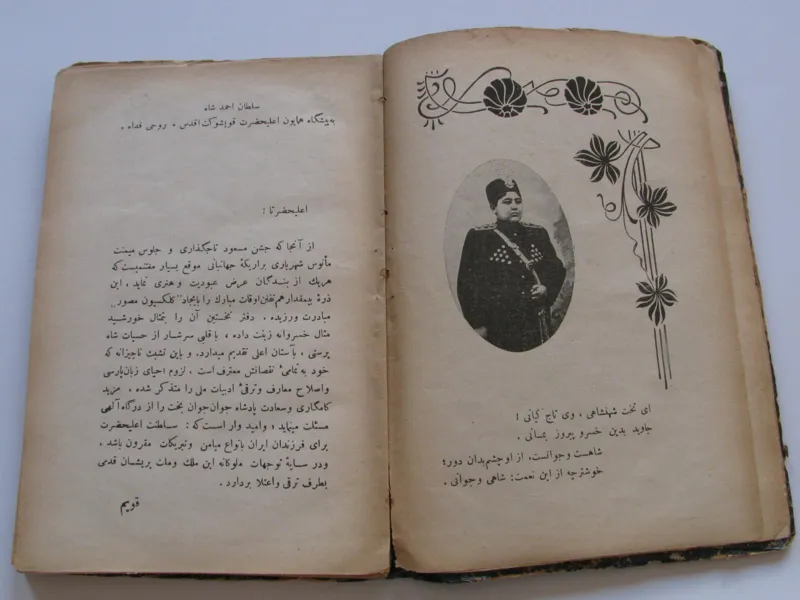 سلطان احمد شاه
به پیشگاه همایون اعلیحضرت قویشوکت اقدس . روحی فداه .
اعلیحضرتا :
از آنجا که جشن مسعود تاجگذاری و جلوس میمنت
مأنوس شهریاری براریکهٔ جهانبانی موقع بسیار مغتنمیست که
هریك از بندگان عرض عبودیت و هنری نماید ، این
ذرهٔ بیمقدار هم تفنن اوقات مبارك را بایجاد "کلکسیون مصور"
مبادرت ورزیده . دفتر نخستین آن را بتمثال خورشید
مثال خسروانه زینت داده ، با قلبی سرشار از حسیات شاه
پرستی ، بآستان اعلی تقدیم میدارد . و باین تشبث ناچیزانه که
خود به تمامیٔ نقصانش معترف است . لزوم احیای زبان پارسی
واصلاح معارف وترقیٔ ادبیات ملی را متذکر شده . مزید
کامگاری وسعادت پادشاه جوان جوان بخت را از درگاه آلهی
مسئلت مینماید ؛ وامید وار است که : سلطنت اعلیحضرت
برای فرزندان ایران بانواع میامن وتبریکات مقرون باشد .
ودر سایهٔ توجهات ملوکانه این ملك وملت پریشان قدمی
بطرف ترقی واعتلا بردارد .
قویم
ای تخت شهنشاهی ، وی تاج کیانی !
جاوید بدین خسرو پیروز بمانی .
شاهست وجوانست، از او چشم بدان دور ؛
خوشترچه از این نعمت: شاهی وجوانی .